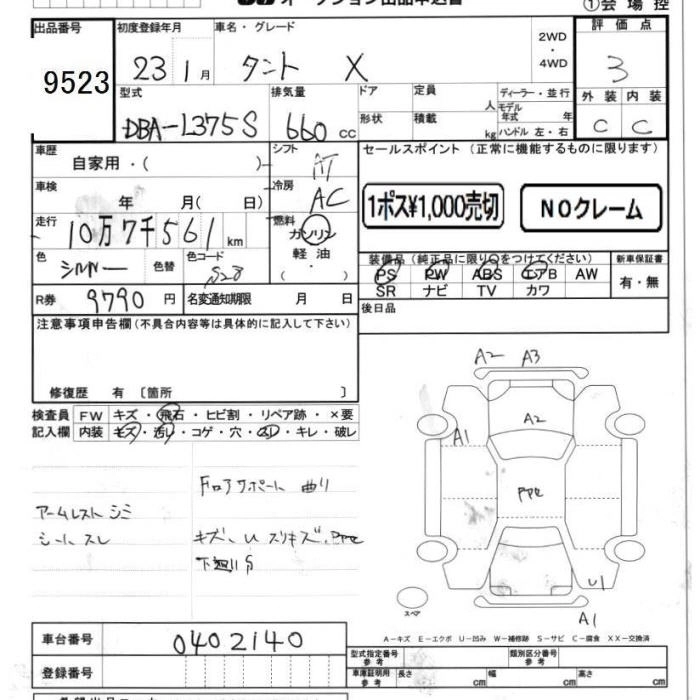 オークション出品申込書
①会場控
出品番号
9523
初度登録年月
23 1月
車名・グレード
タント X
2WD
・
4WD
評価点
3
外装 内装
C C
型式
DBA-L375S
排気量
660 cc
ドア
形状
定員
人
積載
kg
ディーラー・並行
モデル
年式 年
ハンドル 左・右
車歴
自家用・( )
シフト
AT
車検
年 月( 日)
冷房
AC
走行
10万7千561km
燃料
ガソリン
軽油
( ・ )
色
シルバー
色替
色コード
S28
R券
9790 円
名変通知期限 月 日
セールスポイント(正常に機能するものに限ります)
1ポス¥1,000売切
NOクレーム
装備品(純正品に限り○をつけてください)
PS PW ABS エアB AW
SR ナビ TV カワ
新車保証書
有・無
後日品
注意事項申告欄(不具合内容等は具体的に記入して下さい)
修復歴 有 〔箇所 〕
検査員
記入欄
FW キズ・飛石・ヒビ割・リペア跡・×要
内装 キズ・汚レ・コゲ・穴・スレ・キレ・破レ
アームレスト シミ
シート スレ
Fロアサポート 曲り
キズ、U スリキズ、PPte
下廻りS
A2 A3
A1
A2
PPte
U1
A1
スペア
A-キズ E-エクボ U-凹み W-補修跡 S-サビ C-腐食 XX-交換済
車台番号
0402140
登録番号
型式指定番号
参考
類別区分番号
参考
車庫証明用
参考
長さ cm 幅 cm 高さ cm